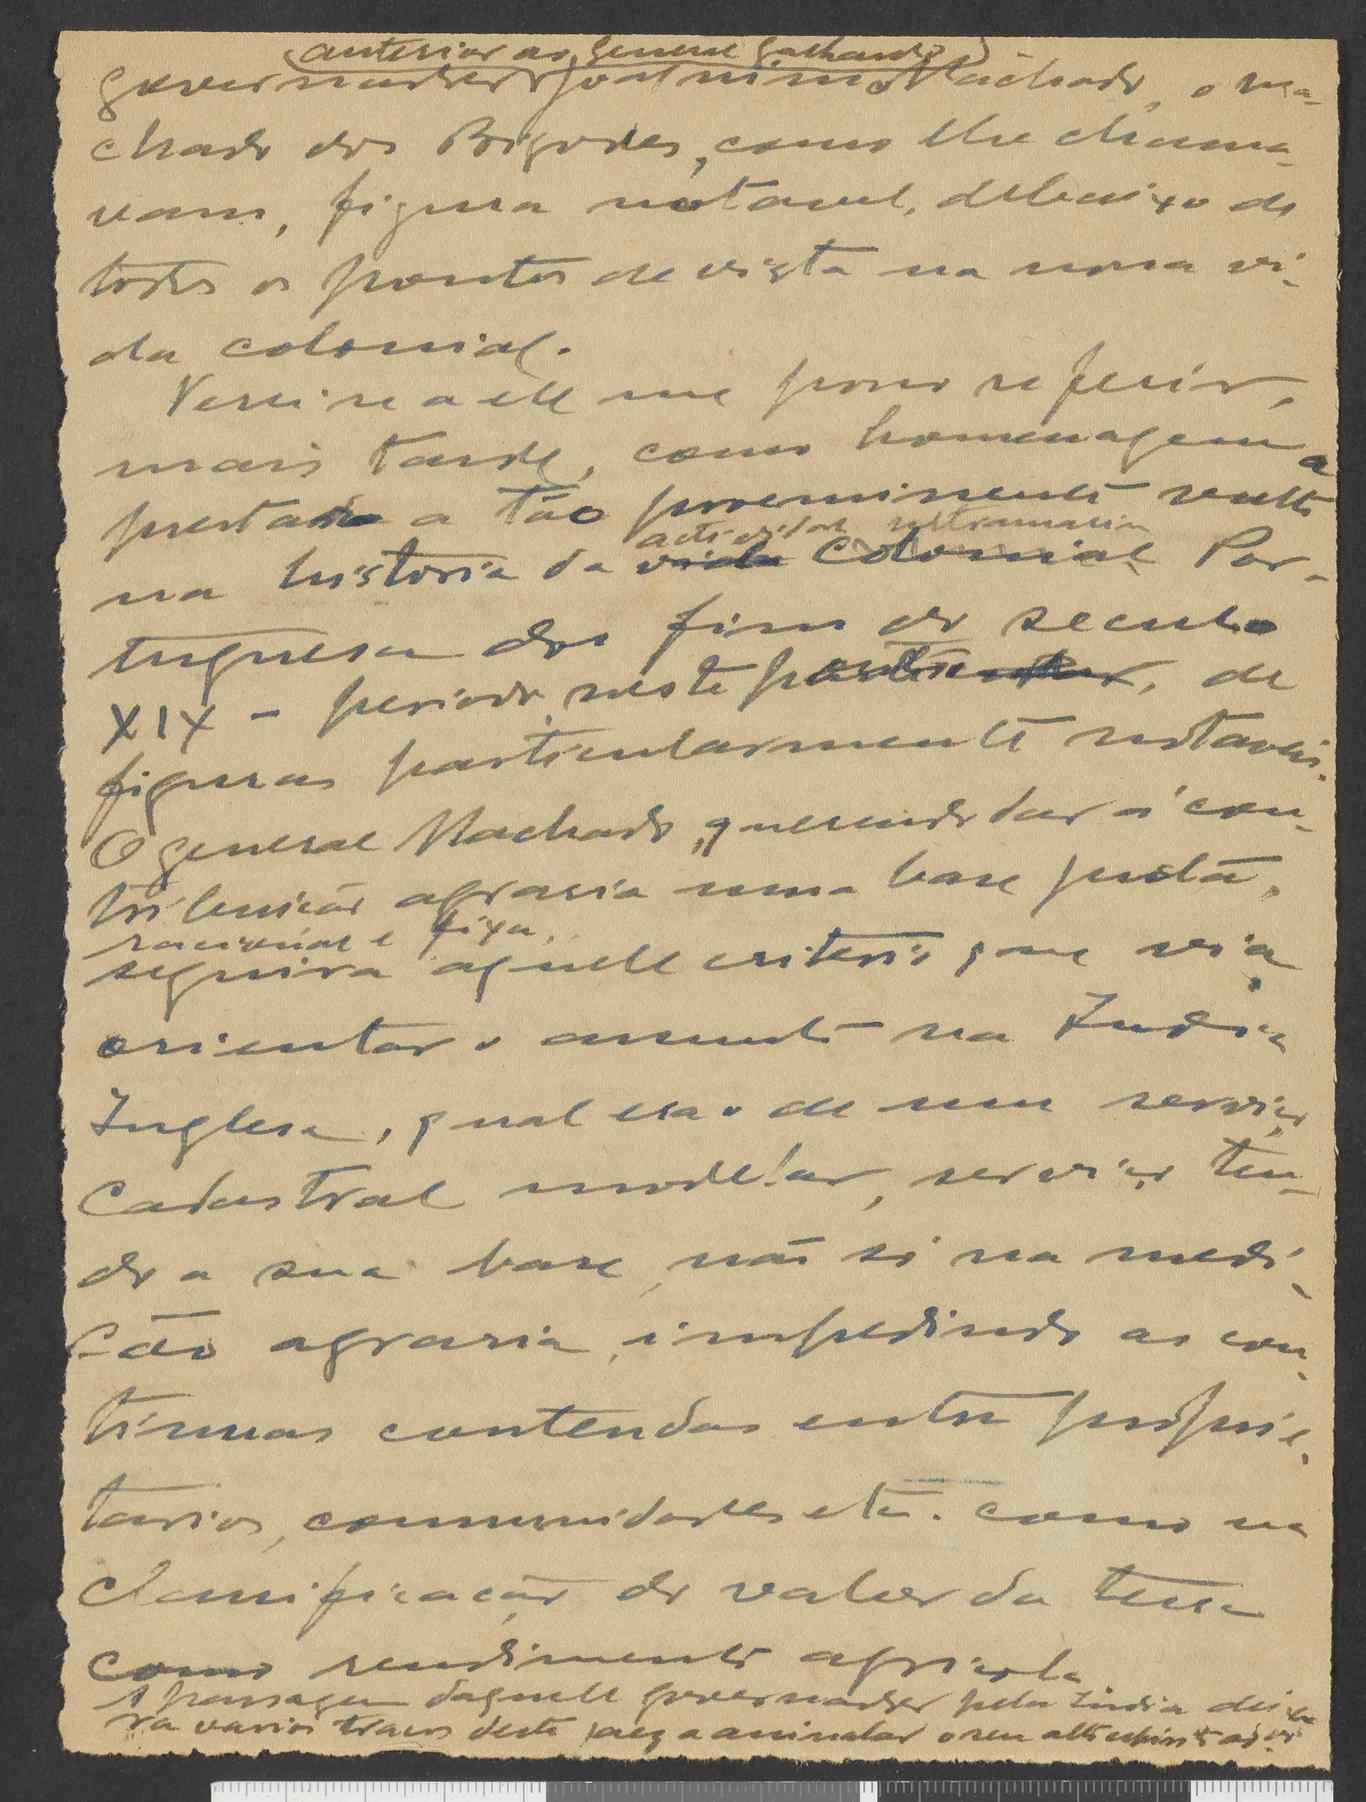 (anterior ao general Galhardo)
governador Joaquim Machado, o Ma-
chado dos Bigodes, como lhe chama-
vam, figura notavel, debaixo de
todos os pontos de vista na nossa vi-
da colonial.
Verei se a elle me posso referir,
mais tarde, como homenagem a
prestar a tão proeminente vulto
actividade ultramarina
na historia da vida colonial Por-
tuguesa do fim do seculo
XIX - periodo, neste particular, de
figuras particularmente notaveis.
O general Machado, querendo dar á con-
tribuição agraria uma base justa,
racional e fixa,
seguira aquelle criterio que via
orientar o assunto na India
Inglesa, qual era o de um serviço
cadastral modelar, serviço ten-
do a sua base, não só na medi-
ção agraria, impedindo as con-
tinuas contendas entre proprie-
tarios, communidades etc. como na
classificação do valor da terra
como rendimento agricola
A passagem daquelle governador pela India deixa-
ra varios traços deste jaez a assinalar o seu alto